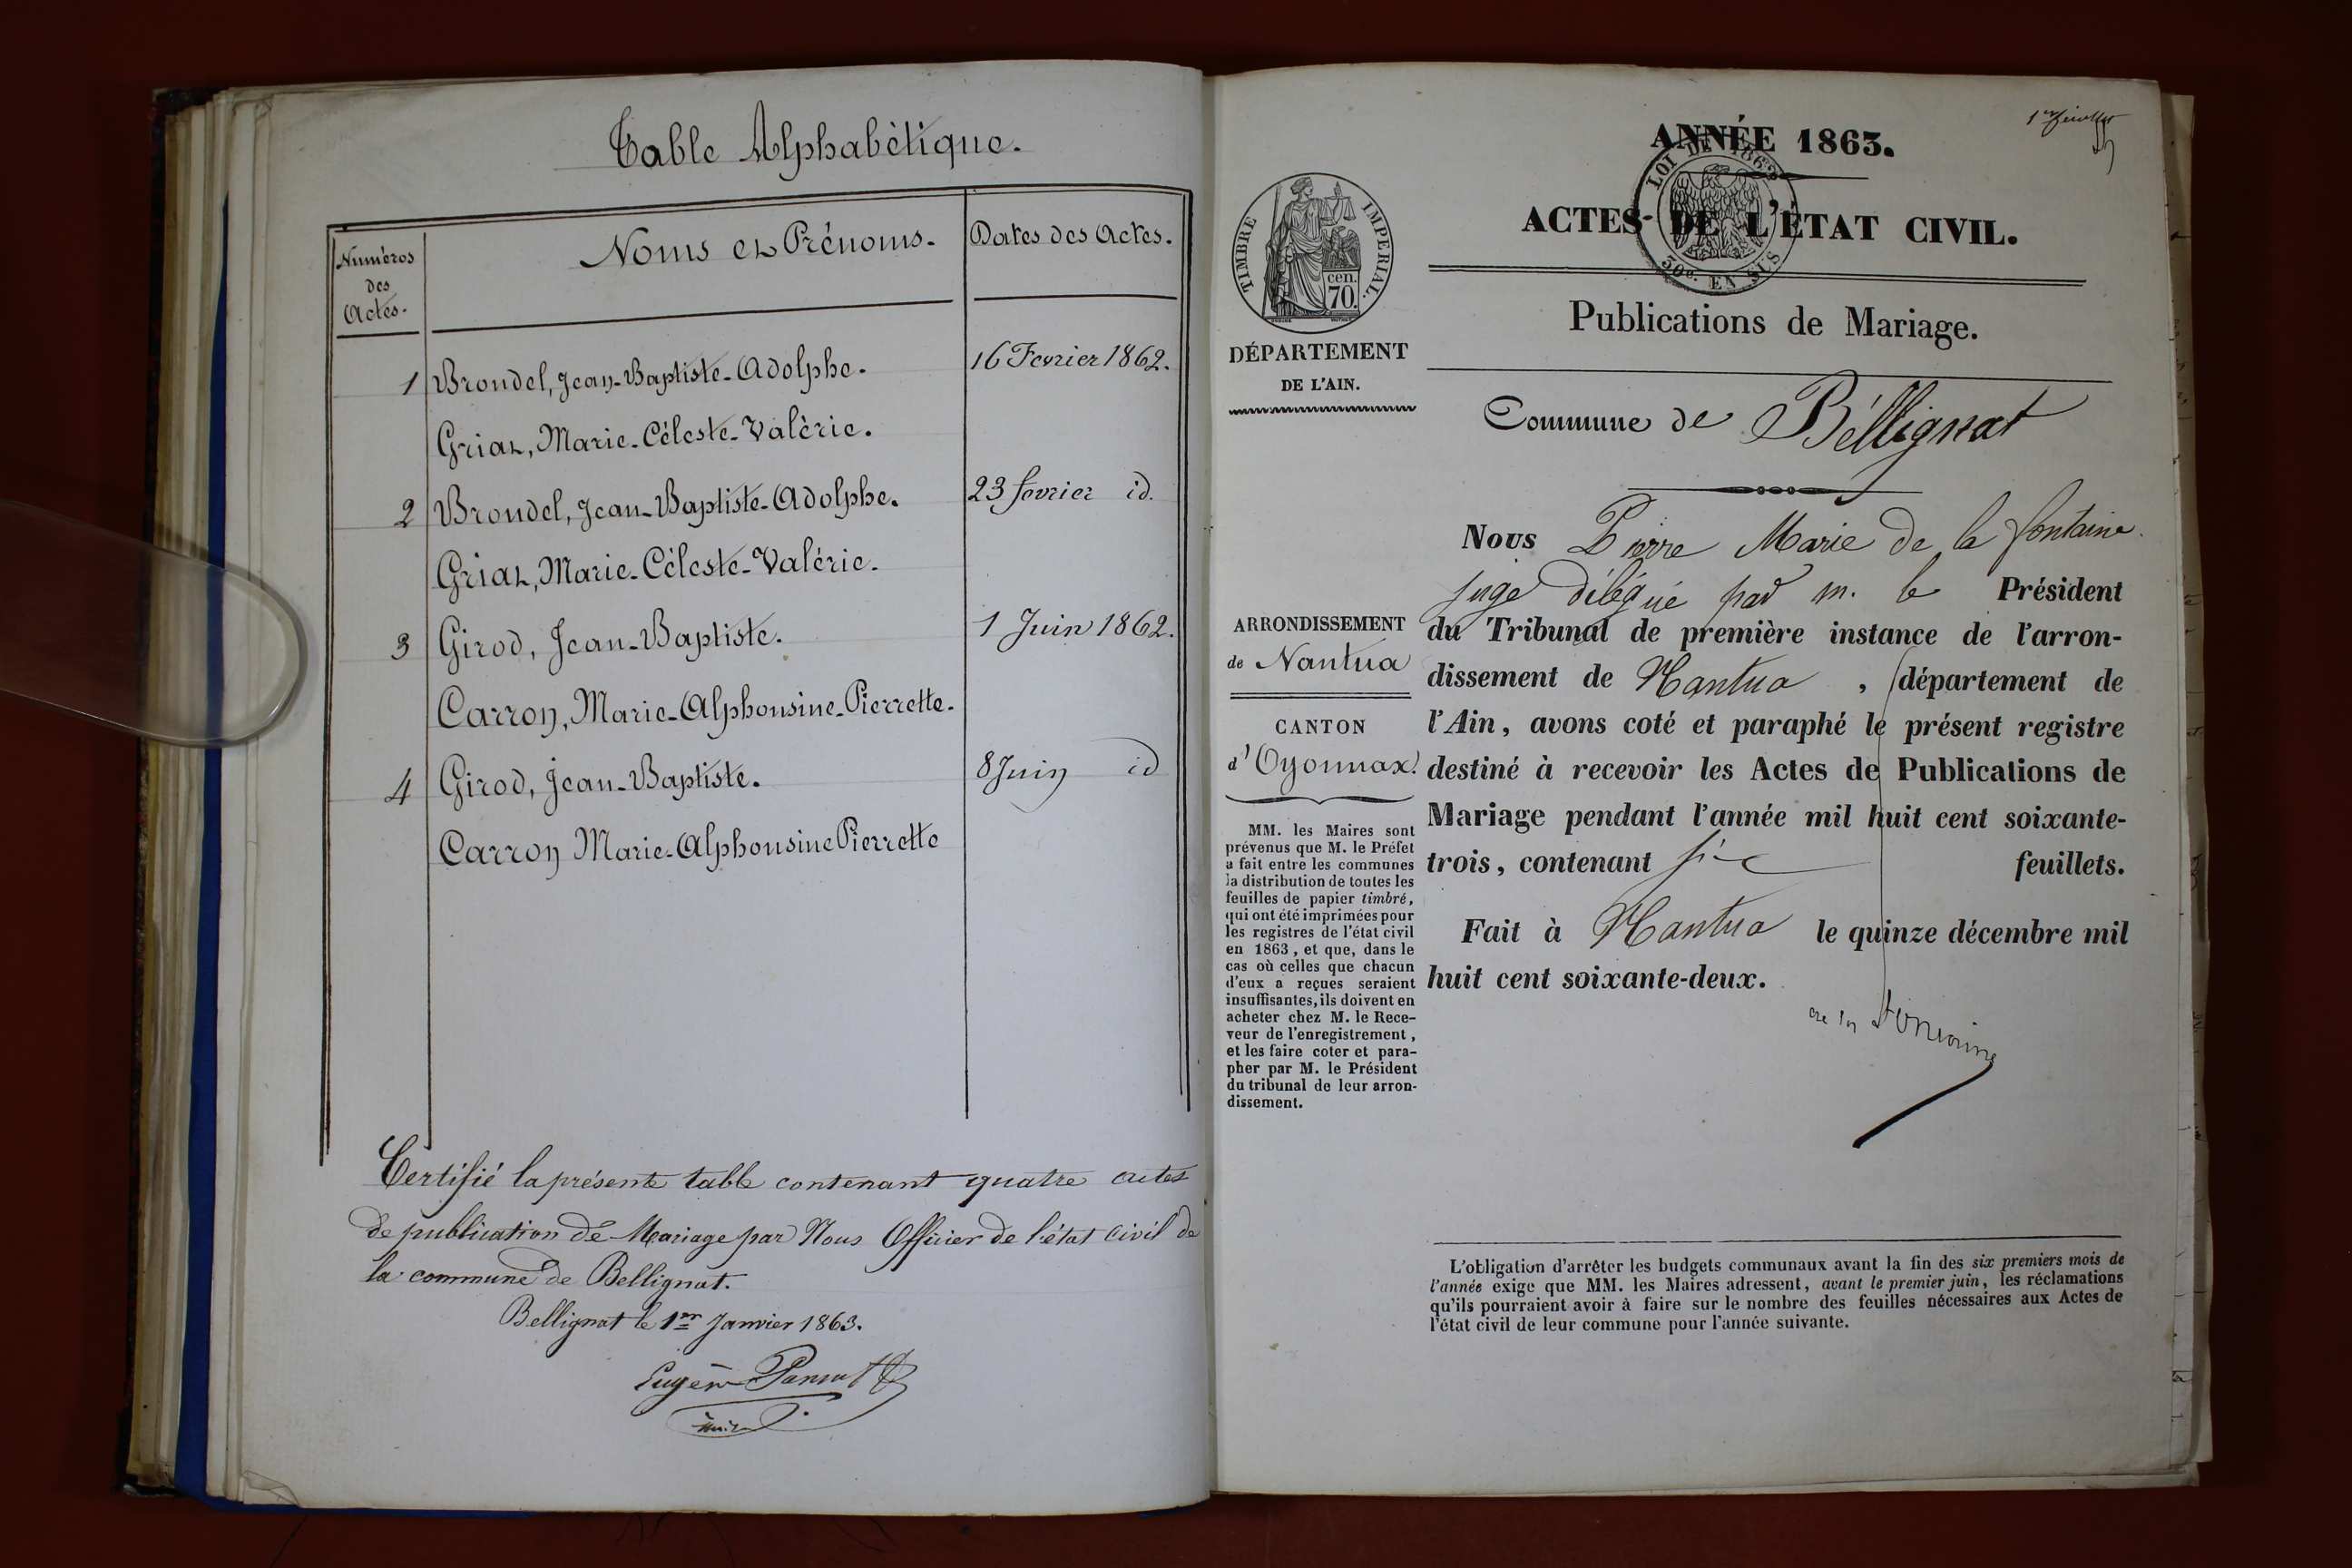 Table Alphabètique.
Numèros
des
Actes.
Noms et Prénoms.
Dates des Actes.
1 Brondel, Jean-Baptiste-Adolphe. 16 Fevrier 1862.
Griat, Marie-Céleste-Valèrie.
2 Brondel, Jean-Baptiste-Adolphe. 23 fevrier id.
Griat, Marie-Céleste-Valérie.
3 Girod, Jean-Baptiste. 1 Juin 1862.
Carron, Marie-Alphonsine-Pierrette.
4 Girod, Jean-Baptiste. 8 Juin id
Carron Marie-Alphonsine Pierrette
Certifié la présente table contenant quatre actes
de publication de Mariage par Nous Officier de l'état civil de
la commune de Bellignat.
Bellignat le 1er Janvier 1863.
Eugène
1er feuillet
ANNÉE 1863.
LOI DE 1862
50c. EN SUS
ACTES DE L'ÉTAT CIVIL.
Publications de Mariage.
Commune de Béllignat
TIMBRE IMPERIAL.
cen.
70.
DÉPARTEMENT
DE L'AIN.
ARRONDISSEMENT
de Nantua
CANTON
d'Oyonnax.
MM. les Maires sont
prévenus que M. le Préfet
a fait entre les communes
la distribution de toutes les
feuilles de papier timbré,
qui ont été imprimées pour
les registres de l'état civil
en 1863, et que, dans le
cas où celles que chacun
d'eux a reçues seraient
insuffisantes, ils doivent en
acheter chez M. le Rece-
veur de l'enregistrement,
et les faire coter et para-
pher par M. le Président
du tribunal de leur arron-
dissement.
Nous Pierre Marie de la fontaine
juge délégué par m. le Président
du Tribunal de première instance de l'arron-
dissement de Nantua, département de
l'Ain, avons coté et paraphé le présent registre
destiné à recevoir les Actes de Publications de
Mariage pendant l'année mil huit cent soixante-
trois, contenant six feuillets.
Fait à Nantua le quinze décembre mil
huit cent soixante-deux.
de la fontaine
L'obligation d'arrêter les budgets communaux avant la fin des six premiers mois de
l'année exige que MM. les Maires adressent, avant le premier juin, les réclamations
qu'ils pourraient avoir à faire sur le nombre des feuilles nécessaires aux Actes de
l'état civil de leur commune pour l'année suivante.